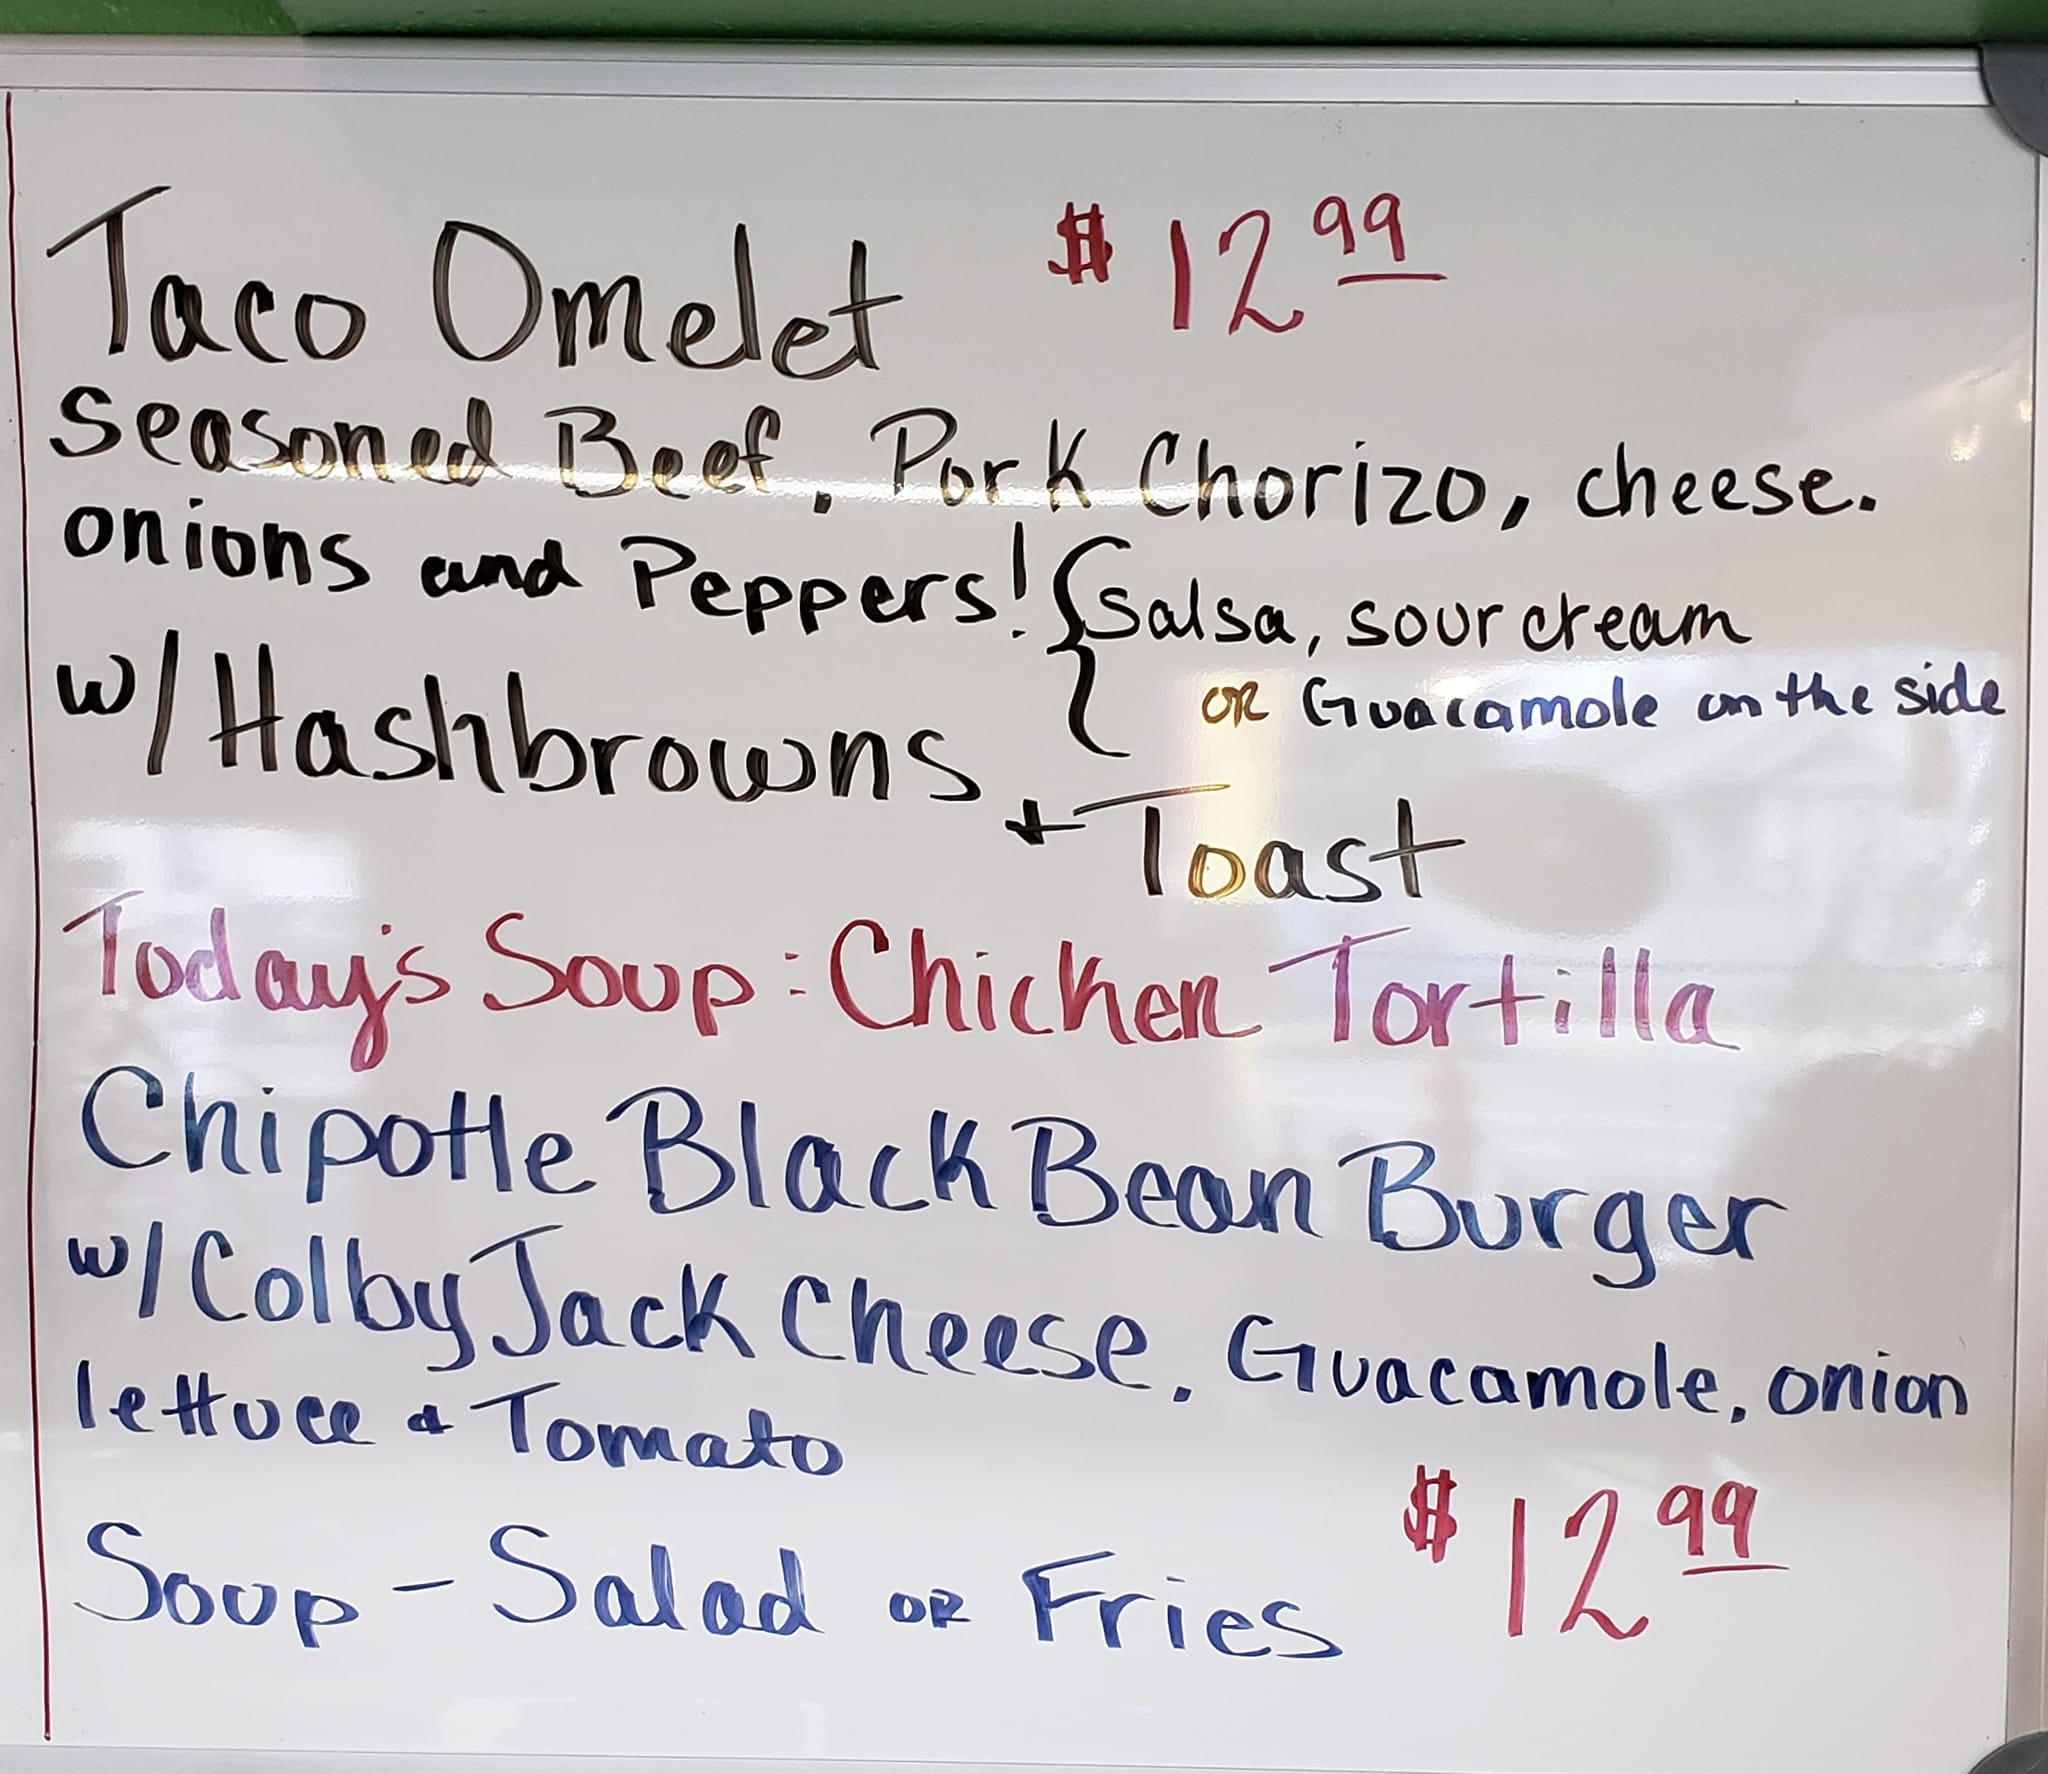 Taco Omelet $12.99
Seasoned Beef, Pork Chorizo, cheese.
onions and Peppers! {salsa, sour cream
or Guacamole on the side
w/ Hashbrowns + Toast
Today's Soup: Chicken Tortilla
Chipotle Black Bean Burger
w/ Colby Jack Cheese, Guacamole, onion
lettuce & Tomato
Soup - Salad or Fries $12.99